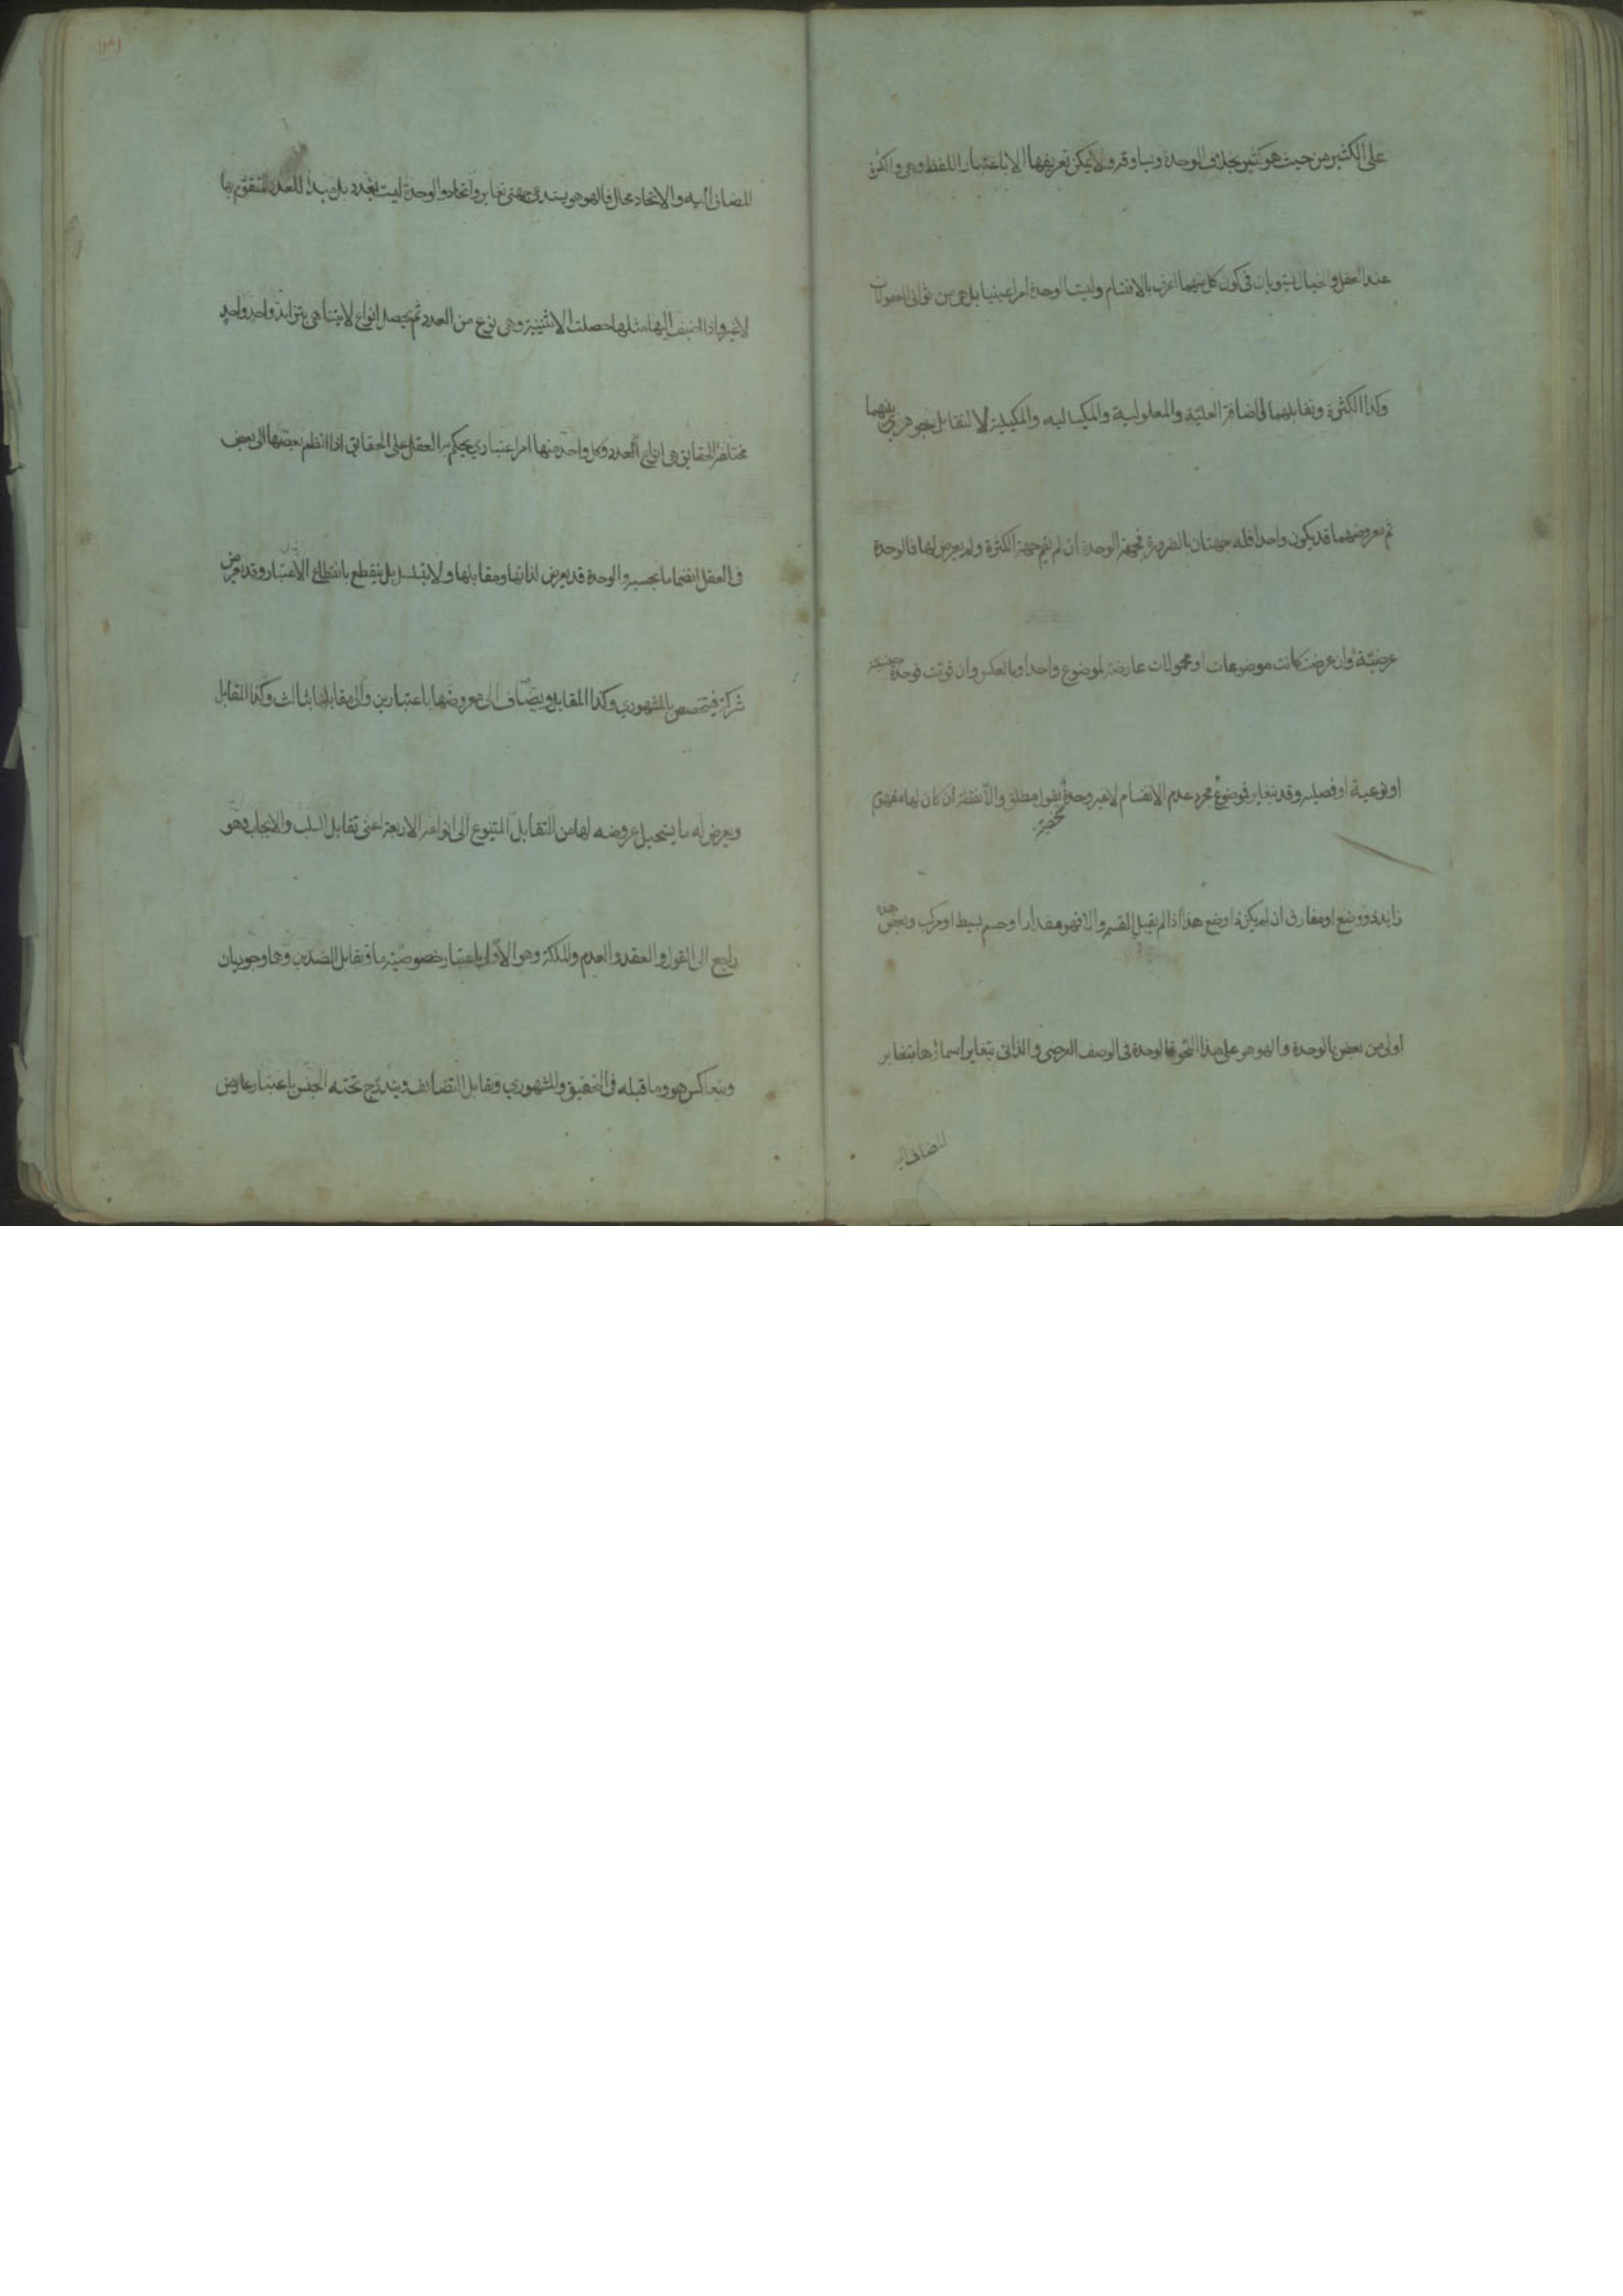 على الكثير من حيث هو كثير بخلاف الوحدة وتساوقه ولا يمكن تعريفها الا باعتبار اللفظ وهى والكثرة
عند العقل والخيال يستويان فى كون كل منهما اعرف بالاقتسام وليست الوحدة امرا عينيا بل هى من ثوانى المعقولات
وكذا الكثرة وتقابلهما لاضافة العلية والمعلولية والمكياليه والمكيلية لا لتقابل جوهرى بينهما
ثم معروضهما قد يكون واحدا فله جهتان بالضرورة فجهة الوحدة ان لم تقوم جهة الكثرة ولم يعرض لها فالوحدة
عرضية وان عرضت كانت موضوعات او محمولات عارضة لموضوع واحد او بالعكس وان قومت فوحدة جنسية
او نوعية او فصلية وقد تتغاير فموضوع مجرد عدم الانقسام لا غير وحدة بقول مطلق والا نقطة ان كان لها مفهوم
شخصية
زايد ذو وضع او مفارق ان لم يكن ذا وضع هذا اذا لم يقبل القسمة والا فهو مقدار او جسم بسيط او مركب وبعض هذه
اولى من بعض بالوحدة والهو هو على هذا النحو فالوحدة فى الوصف العرضى والذاتى يتغاير اسماؤها بتغاير
المضاف اليه
المضاف اليه والاتحاد محال فالهو هو يستدعى جهتى تغاير واتحاد والوحدة ليست بعدد بل مبدا للعدد المتقوم بها
لا غير واذا اضيف اليها مثلها حصلت الاثنينية وهى نوع من العدد ثم يحصل انواع لا يتناهى بتزايد واحد واحد
مختلفة الحقايق هى انواع العدد وكل واحد منها امر اعتبارى يحكم به العقل على الحقايق اذا انظم بعضها الى بعض
فى العقل انضماما بحسبه والوحدة قد يعرض لذاتها ومقابلها ولا يتسلسل بل ينقطع بانقطاع الاعتبار وقد يعرض
شركة فيتخصص بالمشهورى وكذا المقابل ويضاف الى معروضها باعتبارين والى مقابلها بثالث وكذا المقابل
ويعرض له ما يستحيل عروضه لها من التقابل المتنوع الى انواعه الاربعة اعنى تقابل السلب والايجاب وهو
راجع الى القول والعقد والعدم والملكة وهو الاول باعتبار خصوصية ما وتقابل الضدين وهما وجوديان
ويتعاكس هو وما قبله فى التحقيق والمشهورى وتقابل التضايف ويندرج تحته الجنس باعتبار عارض